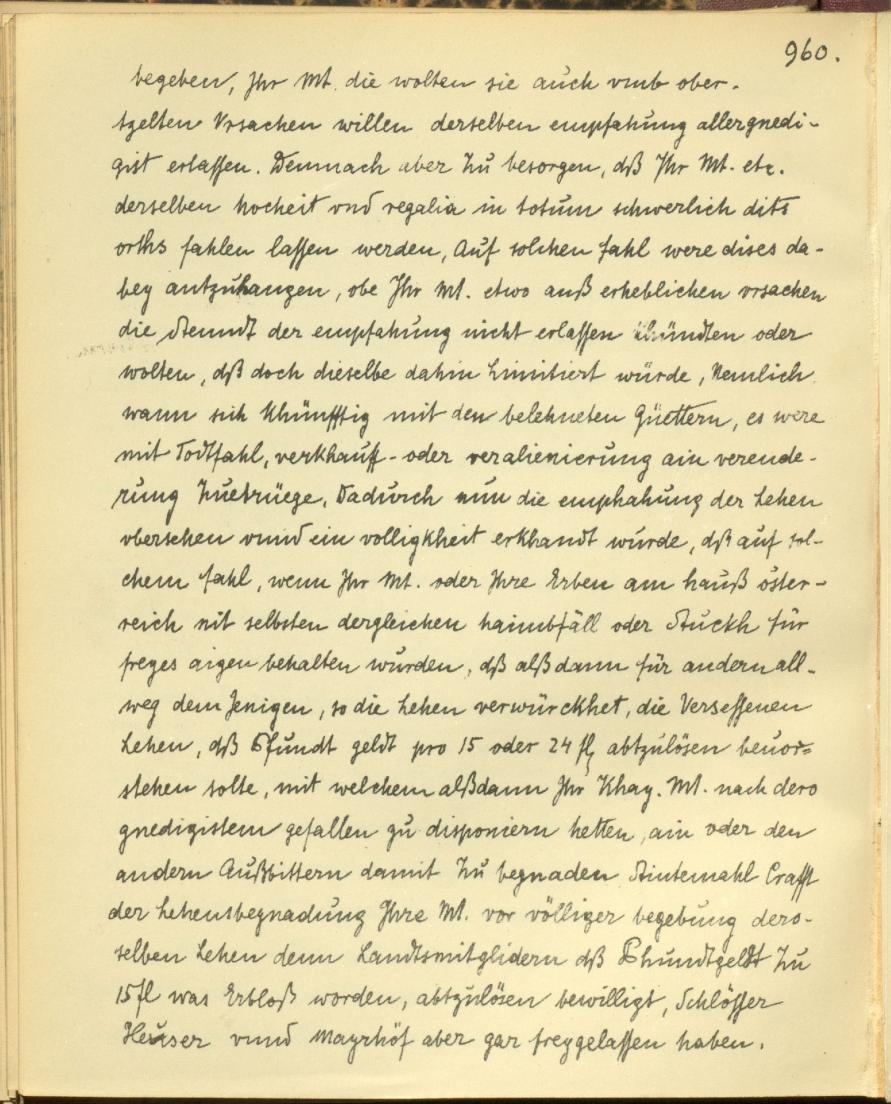 960.
begeben, Ihr Mt. die wolten sie auch vmb ober-
tzelten Vrsachen willen derselben empfahung allergnedi-
gist erlassen. Demnach aber zu besorgen, dß Ihr Mt. etc.
derselben hocheit vnd regalia in totum schwerlich dits
orths fahlen lassen werden, Auf solchen fahl were dises da-
bey antzuhangen, obe Ihr Mt. etwo auß erheblichen vrsachen
die Stenndt der empfahung nicht erlassen khündten oder
wolten, dß doch dieselbe dahin limitiert würde, Nemlich
wann sich khünfftig mit den belehneten Güettern, es were
mit Todtfahl, verkhauff- oder veralienierung ain verende-
rung zuetrüege, Dadurch nun die emphahung der Lehen
vbersehen vnnd ein volligkheit erkhandt wurde, dß auf sol-
chem fahl, wenn Ihr Mt. oder Ihre Erben am hauß öster-
reich nit selbsten dergleichen haimbfäll oder Stuckh für
freyes aigen behalten wurden, dß alßdann für andern all-
weg dem Jenigen, so die Lehen verwürckhet, die Versessenen
Lehen, dß Pfundt geldt pro 15 oder 24 fl, abtzulösen beuor-
stehen solte, mit welchem alßdann Ihr Khay. Mt. nach dero
gnedigistem gefallen zu disponiern hetten, ain oder den
andern Außbittern damit zu begnaden Sintemahl Crafft
der Lehensbegnadung Ihre Mt. vor völliger begebung dero-
selben Lehen denn Landtsmitglidern dß Phundtgeldt zu
15 fl was Erbloß worden, abtzulösen bewilligt, Schlösser
Heüser vnnd Mayrhöf aber gar freygelassen haben.